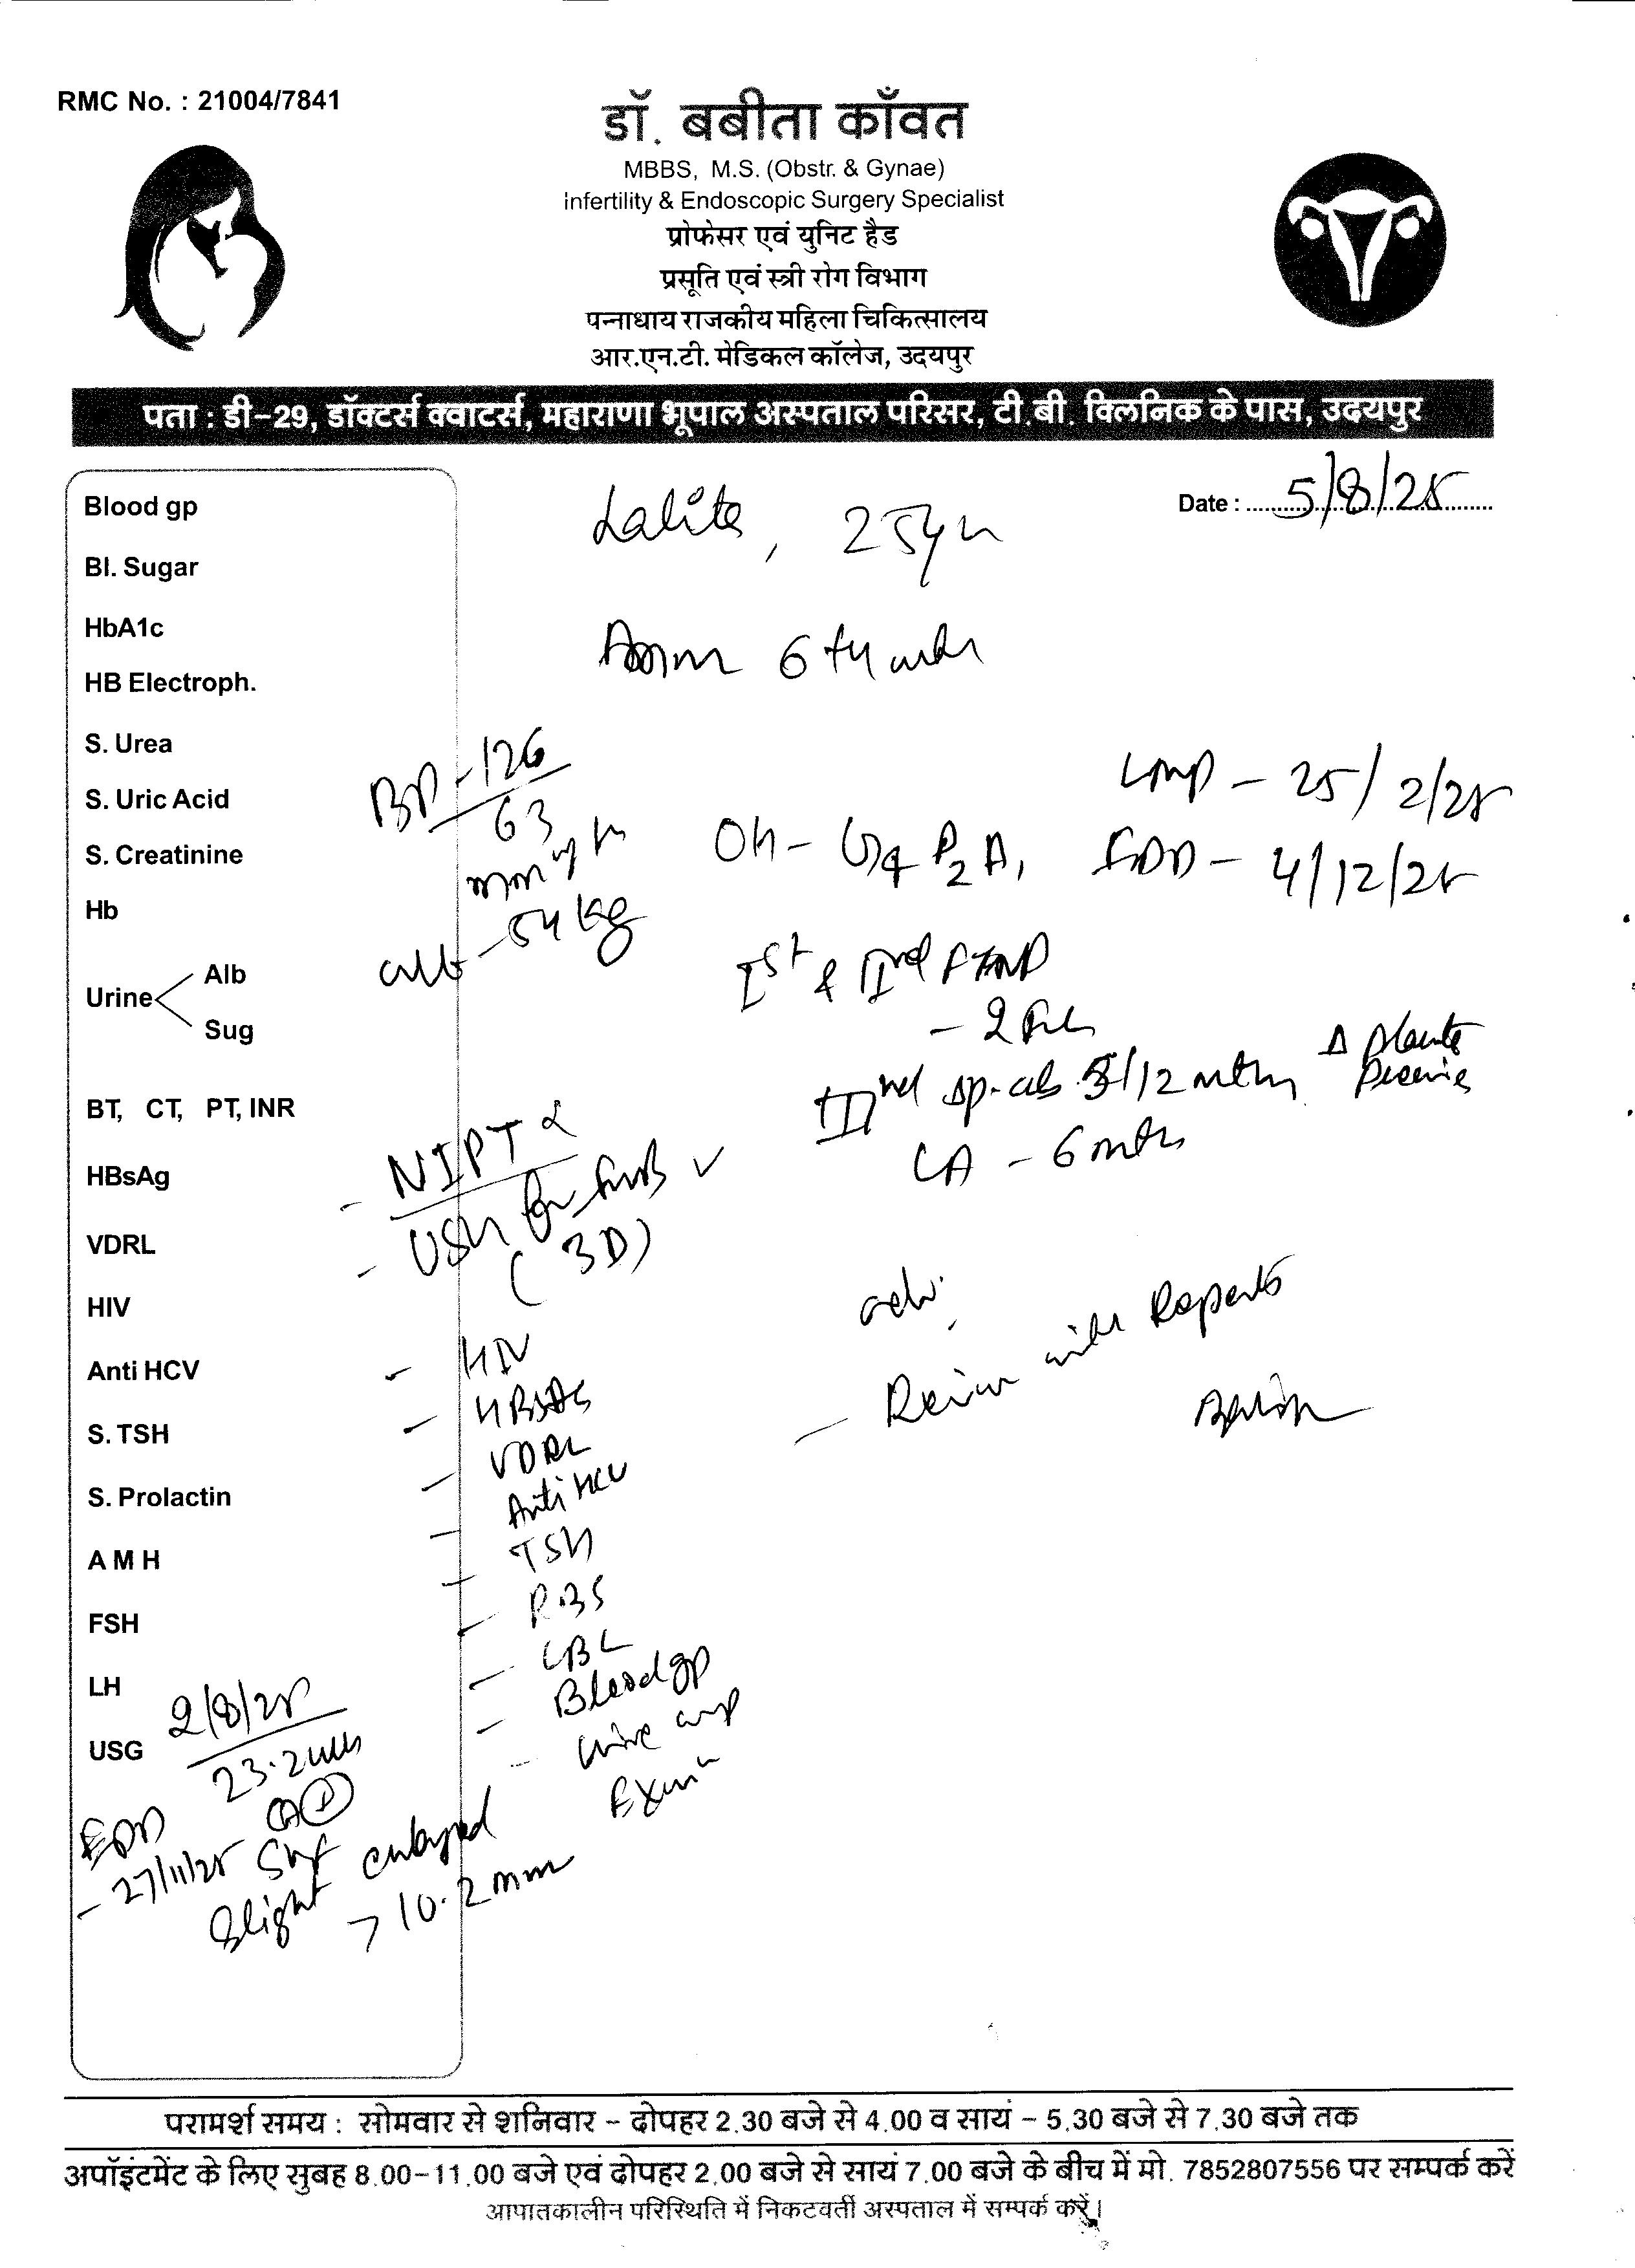 RMC No. : 21004/7841
डॉ. बबीता काँवत
MBBS, M.S. (Obstr. & Gynae)
Infertility & Endoscopic Surgery Specialist
प्रोफेसर एवं युनिट हैड
प्रसूति एवं स्त्री रोग विभाग
पन्नाधाय राजकीय महिला चिकित्सालय
आर.एन.टी. मेडिकल कॉलेज, उदयपुर
पता : डी-29, डॉक्टर्स क्वाटर्स, महाराणा भूपाल अस्पताल परिसर, टी.बी. क्लिनिक के पास, उदयपुर
Date : 5/8/25
Lalita, 25yr
6 +
LMP - 25/2/25
OH - G4 P2 A1
EDD - 4/12/25
Ist & IInd FTND
- 2
IIIrd sp. ab 5/12 mth
LA - 6 mths
adv.
- Review with Reports
Blood gp
Bl. Sugar
HbA1c
HB Electroph.
S. Urea
S. Uric Acid
S. Creatinine
Hb
Urine Alb
Sug
BT, CT, PT, INR
HBsAg
VDRL
HIV
Anti HCV
S. TSH
S. Prolactin
A M H
FSH
LH
USG
BP - 126
63
mm
wt - 54 kg
- NIPT
- USG for
(3D)
- HIV
- HBsAg
- VDRL
- Anti HCV
- TSH
- RBS
- CBC
- Blood gp
- Urine
2/8/25
23.2
EDD
- 27/11/25
Slight enlarged
> 10.2 mm
परामर्श समय : सोमवार से शनिवार - दोपहर 2.30 बजे से 4.00 व सायं - 5.30 बजे से 7.30 बजे तक
अपॉइंटमेंट के लिए सुबह 8.00-11.00 बजे एवं दोपहर 2.00 बजे से सायं 7.00 बजे के बीच में मो. 7852807556 पर सम्पर्क करें
आपातकालीन परिस्थिति में निकटवर्ती अस्पताल में सम्पर्क करें।